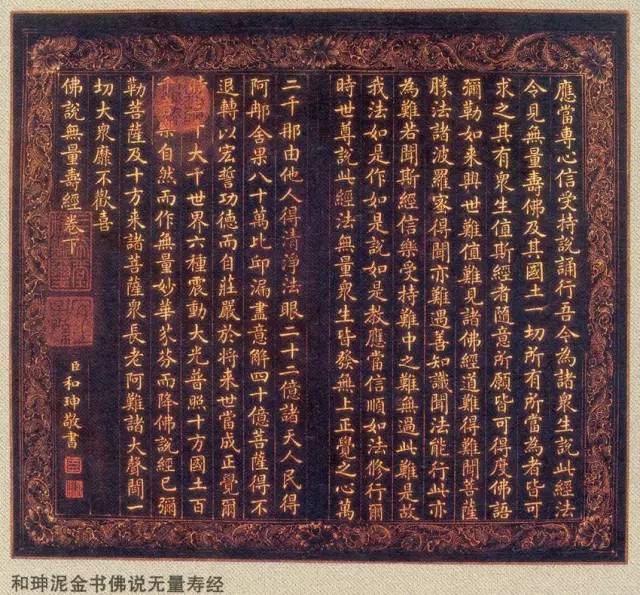 應當專心信受持說誦行吾今為諸衆生說此經法
令見無量壽佛及其國土一切所有所當為者皆可
求之其有衆生值斯經者隨意所願皆可得度佛語
彌勒如来興世難值難見諸佛經道難得難聞菩薩
勝法諸波羅蜜得聞亦難遇善知識聞法能行此亦
為難若聞斯經信樂受持難中之難無過此難是故
我法如是作如是說如是教應當信順如法修行爾
時世尊說此經法無量衆生皆發無上正覺之心萬
二千那由他人得清淨法眼二十二億諸天人民得
阿那舍果八十萬比邱漏盡意解四十億菩薩得不
退轉以宏誓功德而自莊嚴於將来世當成正覺爾
時千大千世界六種震動大光普照十方國土百
千樂自然而作無量妙華芬芬而降佛說經已彌
勒菩薩及十方来諸菩薩衆長老阿難諸大聲聞一
切大衆靡不歡喜
佛說無量壽經卷下
臣和珅敬書
和珅泥金书佛说无量寿经